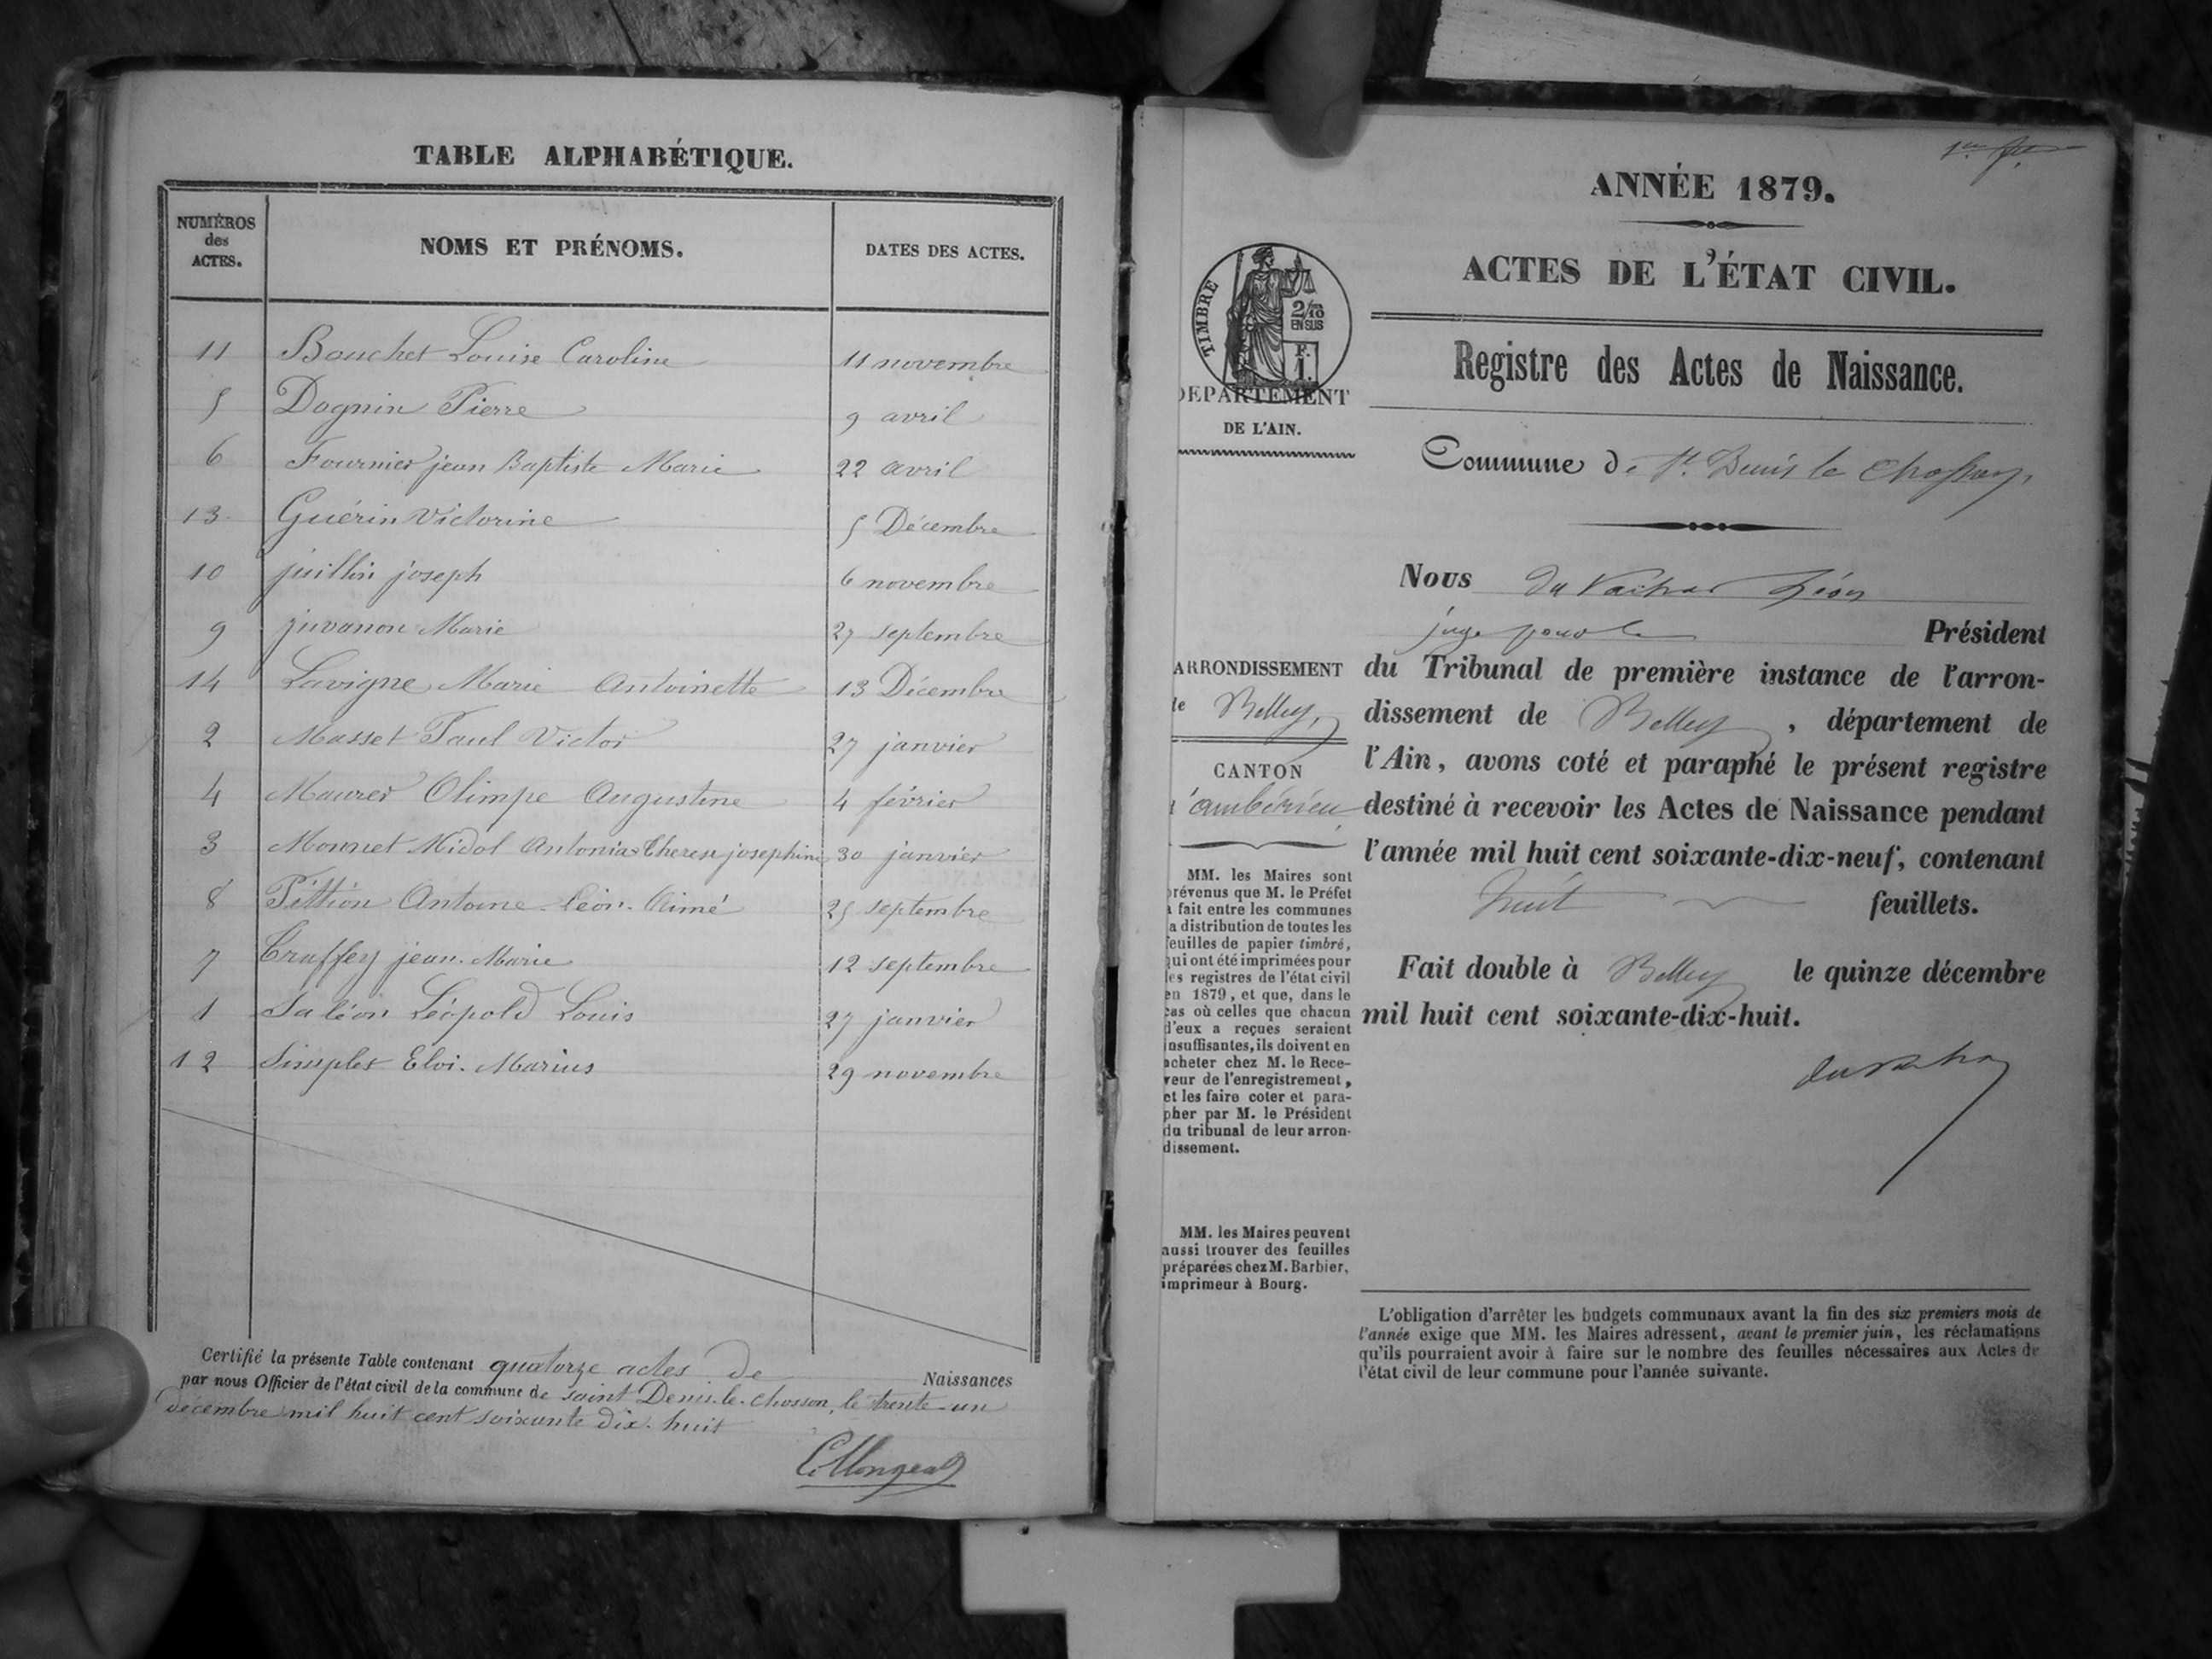 TABLE ALPHABÉTIQUE.
NUMÉROS des ACTES.
NOMS ET PRÉNOMS.
DATES DES ACTES.
11 Bouchet Louise Caroline 11 novembre
5 Dognin Pierre 9 avril
6 Fournier jean Baptiste Marie 22 avril
13 Guérin Victorine 5 Décembre
10 juillin joseph 6 novembre
9 juvanon Marie 27 septembre
14 Lavigne Marie Antoinette 13 Décembre
2 Masset Paul Victor 27 janvier
4 Maurer Olimpe Augustine 4 février
3 Monnet Midol Antonia Therese josephine 30 janvier
8 Pittion Antoine Léon Aimé 25 septembre
7 Truffey jean Marie 12 septembre
1 Saléon Léopold Louis 27 janvier
12 Simplex Eloi Marius 29 novembre
Certifié la présente Table contenant quatorze actes de Naissances
par nous Officier de l'état civil de la commune de saint Denis le chosson, le trente un
décembre mil huit cent soixante dix huit
ANNÉE 1879.
ACTES DE L'ÉTAT CIVIL.
TIMBRE
2/10
EN SUS
F.
1.
DEPARTEMENT
DE L'AIN.
Registre des Actes de Naissance.
Commune de St. Denis le Chosson,
Nous Léon
juge pour le Président
ARRONDISSEMENT
de Belley,
CANTON
d'ambérieu
du Tribunal de première instance de l'arron-
dissement de Belley, département de
l'Ain, avons coté et paraphé le présent registre
destiné à recevoir les Actes de Naissance pendant
l'année mil huit cent soixante-dix-neuf, contenant
huit feuillets.
Fait double à Belley le quinze décembre
mil huit cent soixante-dix-huit.
MM. les Maires sont
prévenus que M. le Préfet
a fait entre les communes
la distribution de toutes les
feuilles de papier timbré,
qui ont été imprimées pour
les registres de l'état civil
en 1879, et que, dans le
cas où celles que chacun
d'eux a reçues seraient
insuffisantes, ils doivent en
acheter chez M. le Rece-
veur de l'enregistrement,
et les faire coter et para-
pher par M. le Président
du tribunal de leur arron-
dissement.
MM. les Maires peuvent
aussi trouver des feuilles
préparées chez M. Barbier,
imprimeur à Bourg.
L'obligation d'arrêter les budgets communaux avant la fin des six premiers mois de
l'année exige que MM. les Maires adressent, avant le premier juin, les réclamations
qu'ils pourraient avoir à faire sur le nombre des feuilles nécessaires aux Actes de
l'état civil de leur commune pour l'année suivante.